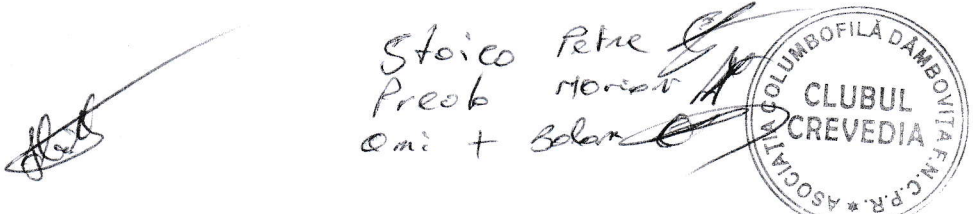 Stoica Petre
Preob Morian
Omi + Bolan
ASOCIAȚIA COLUMBOFILĂ DÂMBOVIȚA F.N.C.P.R. *
CLUBUL
CREVEDIA